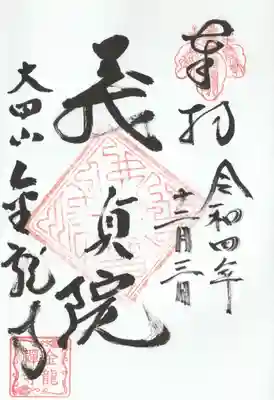 奉拝
令和四年
十二月三日
義貞院
大田山
金龍寺
金龍禪寺